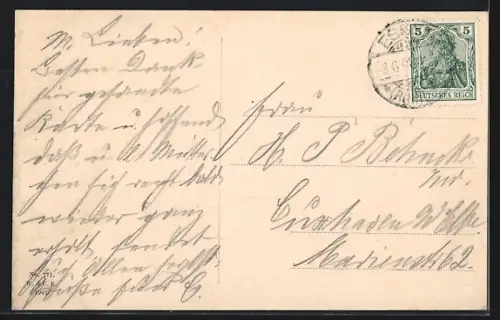 M. Lieben!
Besten Dank
für gesandte
Karte u. hoffend
daß u. l. Mutter-
chen sich recht bald
wieder ganz
erholt sendet
Euch Allen herzl.
Grüße
5 5
DEUTSCHES REICH
Frau
H. P. Behncke
Cuxhaven
Marienstr 62.